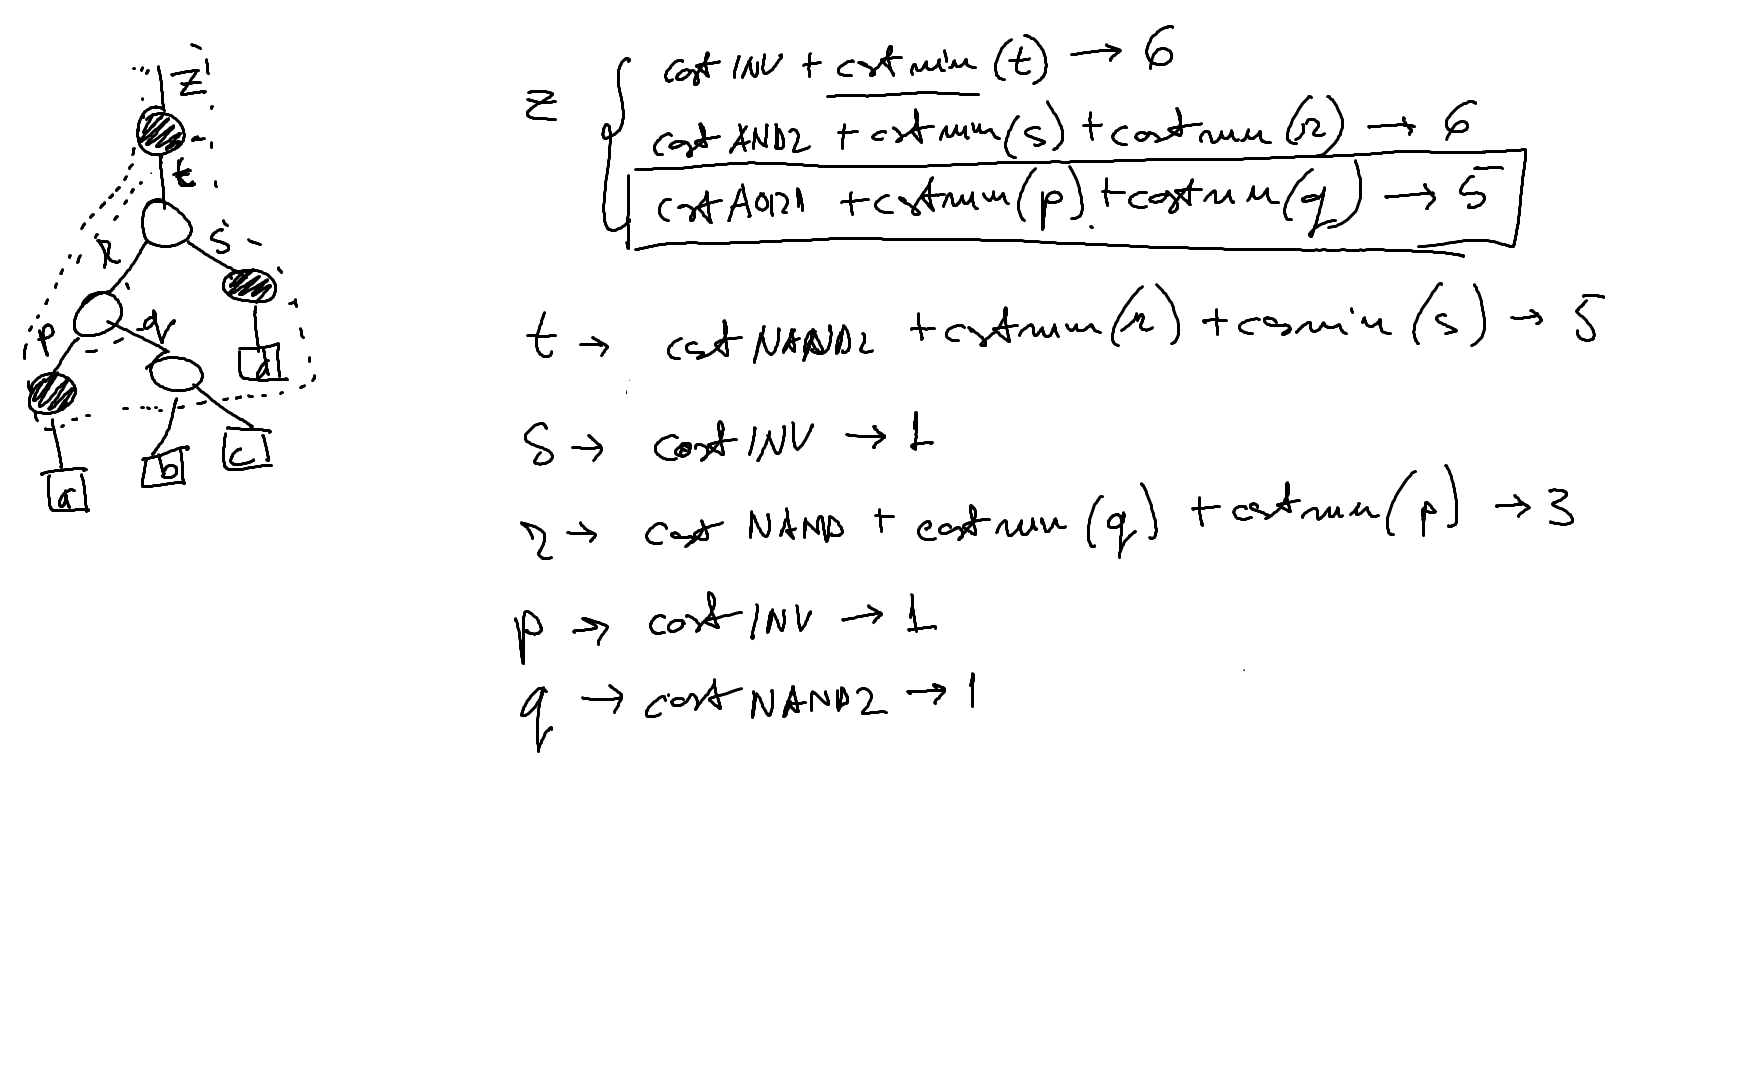 z
t
r
s
p
q
d
a
b
c
z { cost INV + cost min (t) → 6
cost AND2 + cost min (s) + cost min (r) → 6
cost AOI21 + cost min (p) + cost min (q) → 5
t → cost NAND2 + cost min (r) + cosmin (s) → 5
s → cost INV → 1
r → cost NAND + cost min (q) + cost min (p) → 3
p → cost INV → 1
q → cost NAND2 → 1